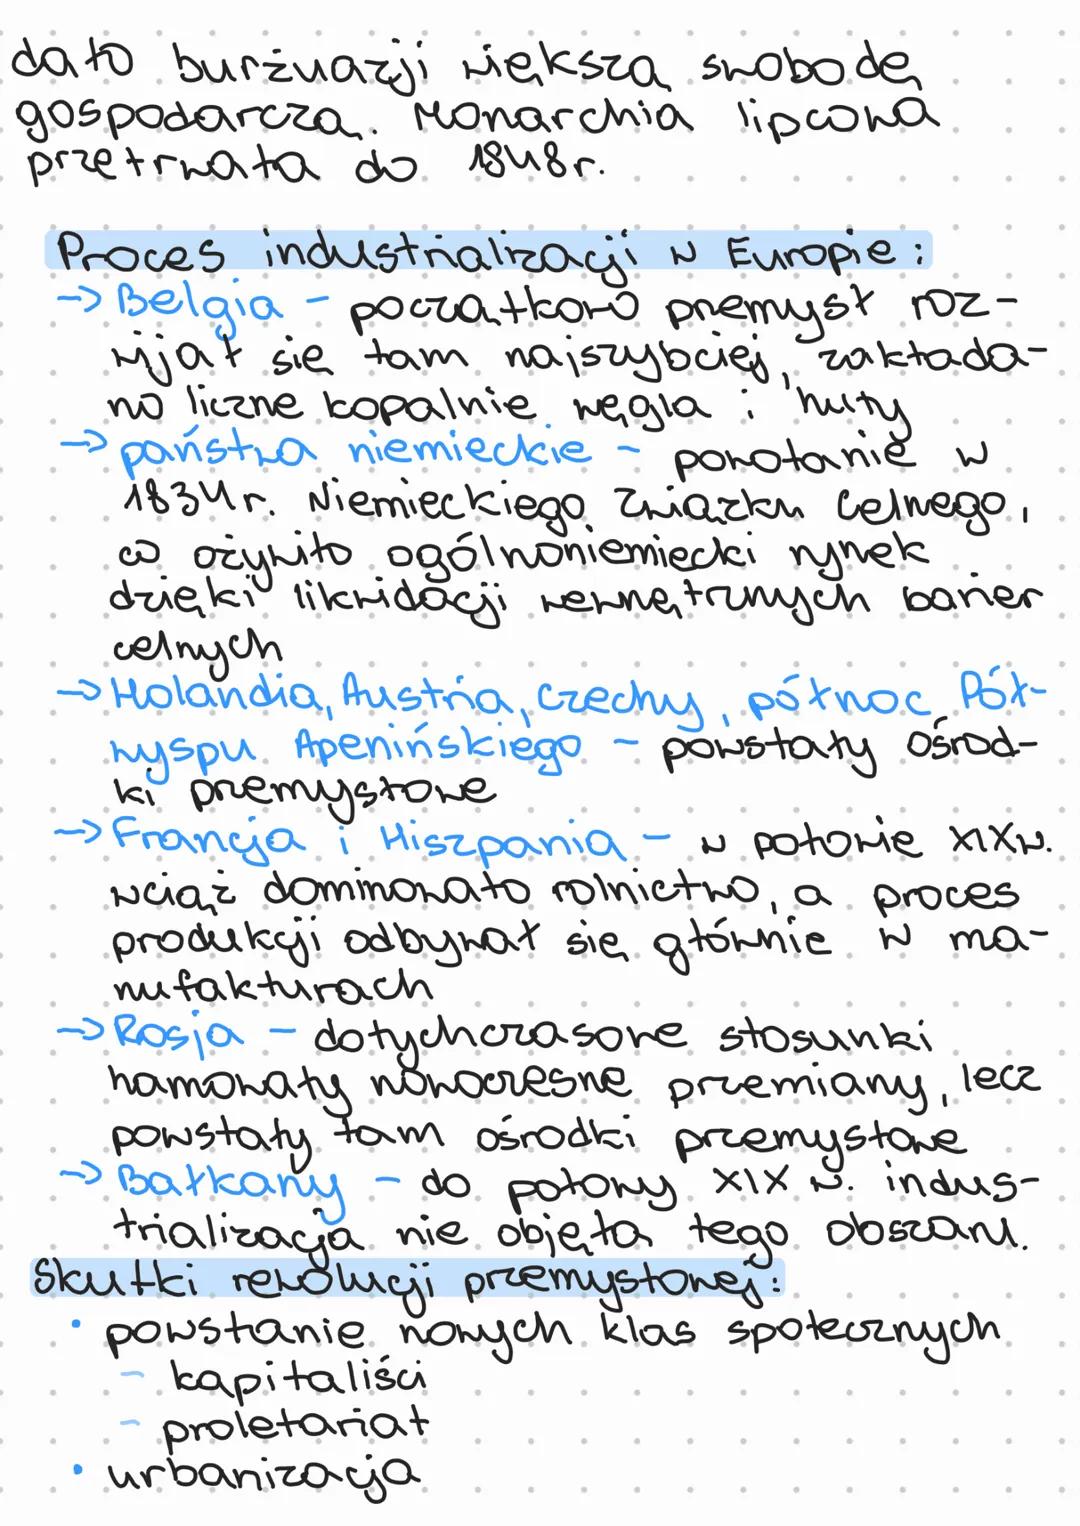 dało burżuazji większą swobodę
gospodarczą. Monarchia lipcowa
przetrwała do 1848r.
Proces industrializacji w Europie:
→ Belgia - początkowo przemysł roz-
wijał się tam najszybciej, zakłada-
no liczne kopalnie węgla i huty
→ państwa niemieckie - powołanie w
1834r. Niemieckiego Związku Celnego,
co ożywiło ogólnoniemiecki rynek
dzięki likwidacji wewnętrznych barier
celnych
→ Holandia, Austria, Czechy, północ Pół-
wyspu Apenińskiego - powstały ośrod-
ki przemysłowe
→ Francja i Hiszpania - w połowie XIXw.
wciąż dominowało rolnictwo, a proces
produkcji odbywał się głównie w ma-
nufakturach
→ Rosja - dotychczasowe stosunki
hamowały nowoczesne przemiany, lecz
powstały tam ośrodki przemysłowe
→ Bałkany - do połowy XIX w. indus-
trializacja nie objęła tego obszaru.
Skutki rewolucji przemysłowej:
• powstanie nowych klas społecznych
- kapitaliści
- proletariat
• urbanizacja